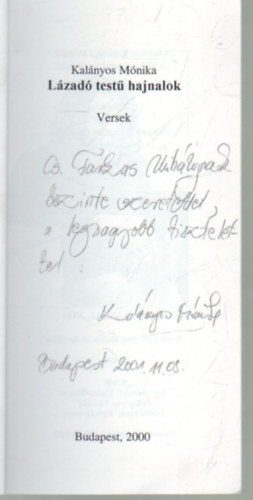 Kalányos Mónika
Lázadó testű hajnalok
Versek
Cs. Farkas Mihálynak
őszinte szeretettel,
a legnagyobb tisztelet-
tel :
Kalányos Mónika
Budapest 2001. 11. 03.
Budapest, 2000